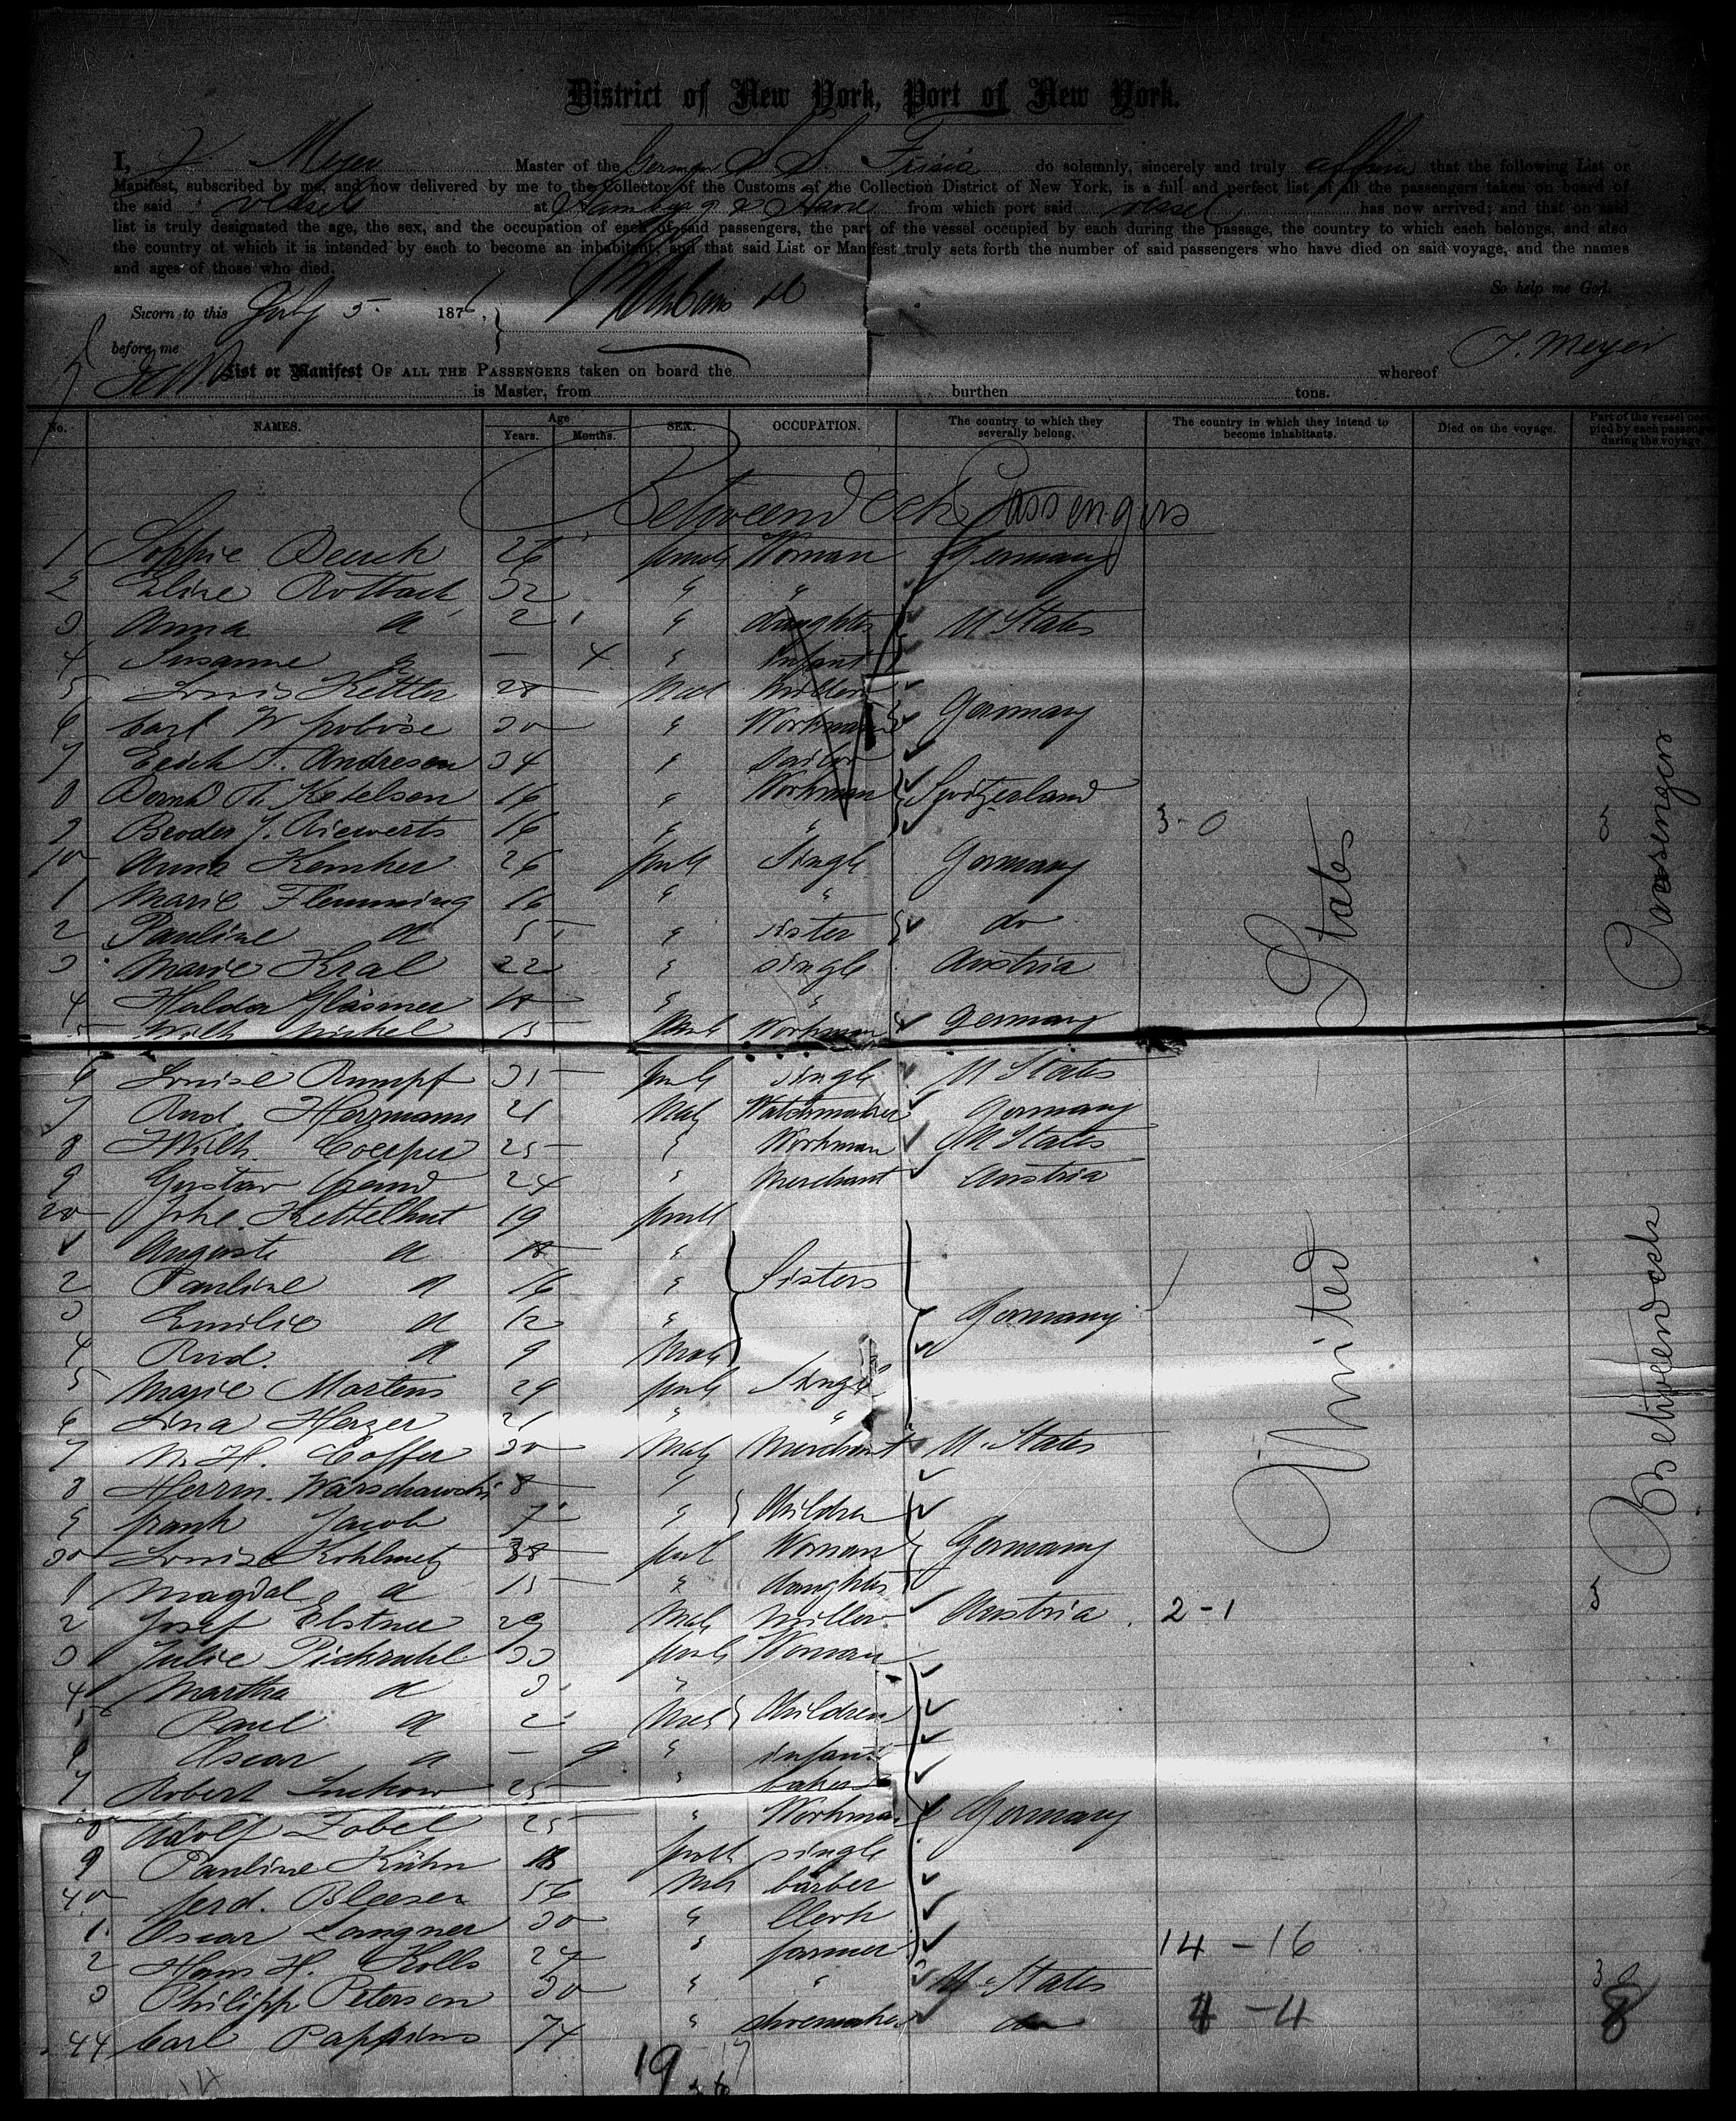 District of New York, Port of New York.
I, J. Meyer Master of the German S. S. Frisia do solemnly, sincerely and truly affirm that the following List or
Manifest, subscribed by me, and now delivered by me to the Collector of the Customs of the Collection District of New York, is a full and perfect list of all the passengers taken on board of
the said vessel at Hamburg & Havre from which port said vessel has now arrived; and that on said
list is truly designated the age, the sex, and the occupation of each of said passengers, the part of the vessel occupied by each during the passage, the country to which each belongs, and also
the country of which it is intended by each to become an inhabitant; and that said List or Manifest truly sets forth the number of said passengers who have died on said voyage, and the names
and ages of those who died.
So help me God.
Sworn to this July 5 187
before me
J. Meyer
List or Manifest OF ALL THE PASSENGERS taken on board the whereof
is Master, from burthen tons.
No. NAMES. Age Years. Months. SEX. OCCUPATION. The country to which they severally belong. The country in which they intend to become inhabitants. Died on the voyage. Part of the vessel occupied by each passenger during the voyage.
Betweendeck Passengers
1 Sophie 26 female Woman Germany
2 Eline Rottach 32 " "
3 Anna d 2 " daughter U States
4 Susanne d — 4 " Infant
5 Louis Kettler 28 Mal
6 Carl W 30 " Workman Germany
7 Erich T. Andresen 34 " sailor
8 Bernh Ketelsen 16 " Workman Switzerland
9 Broder J. Riewerts 16 " " 3-0 5
10 Anna Kemker 26 female Single Germany
1 Marie Flemming 16 " "
2 Pauline d 5 " sister do
3 Marie Kral 22 " single Austria
4 Hulda Gläsmer 18 " "
5 Wilh Nickel 15 Male Workman Germany
6 Louise Rumpf 35 female single U States
7 Rud. Herrmann 21 Male Watchmaker Germany
8 Wilh. Coerper 25 " Workman U States
9 Gustav 24 " Merchant Austria
20 Joh. Kettelhut 19 female
1 Auguste d 18 "
2 Pauline d 16 " Sisters
3 Emilie d 12 " Germany
4 Rud. d 9 Male
5 Marie Martens 29 female Single
6 Lina Herzer 21 " "
7 N. H. Coffer 30 Male Merchant U. States
8 Herrm. Warschawski 8 "
9 Frank Jacob 7 " Children
30 Louise Kohlmetz 38 female Woman Germany
1 Magdal. d 15 " daughter
2 Josef Elstner 29 Male miller Austria 2-1 5
3 Julie Pickruhl 33 female Woman
4 Martha d 3 "
5 Paul d 2 Male Children
6 Oscar d — 9 " infant
7 Robert Luckow 25 " baker
8 Adolf Zobel 25 " Workman Germany
9 Pauline Kühn 18 female single
40 Ferd. Bleeser 56 Male barber
1 Oscar Langner 30 " Clerk
2 Hans H. Kolls 24 " farmer 14-16
3 Philipp Peterson 30 " " U. States 3
44 Carl 74 " shoemaker do 4-4 8
19 17
United States
Betweendeck Passengers